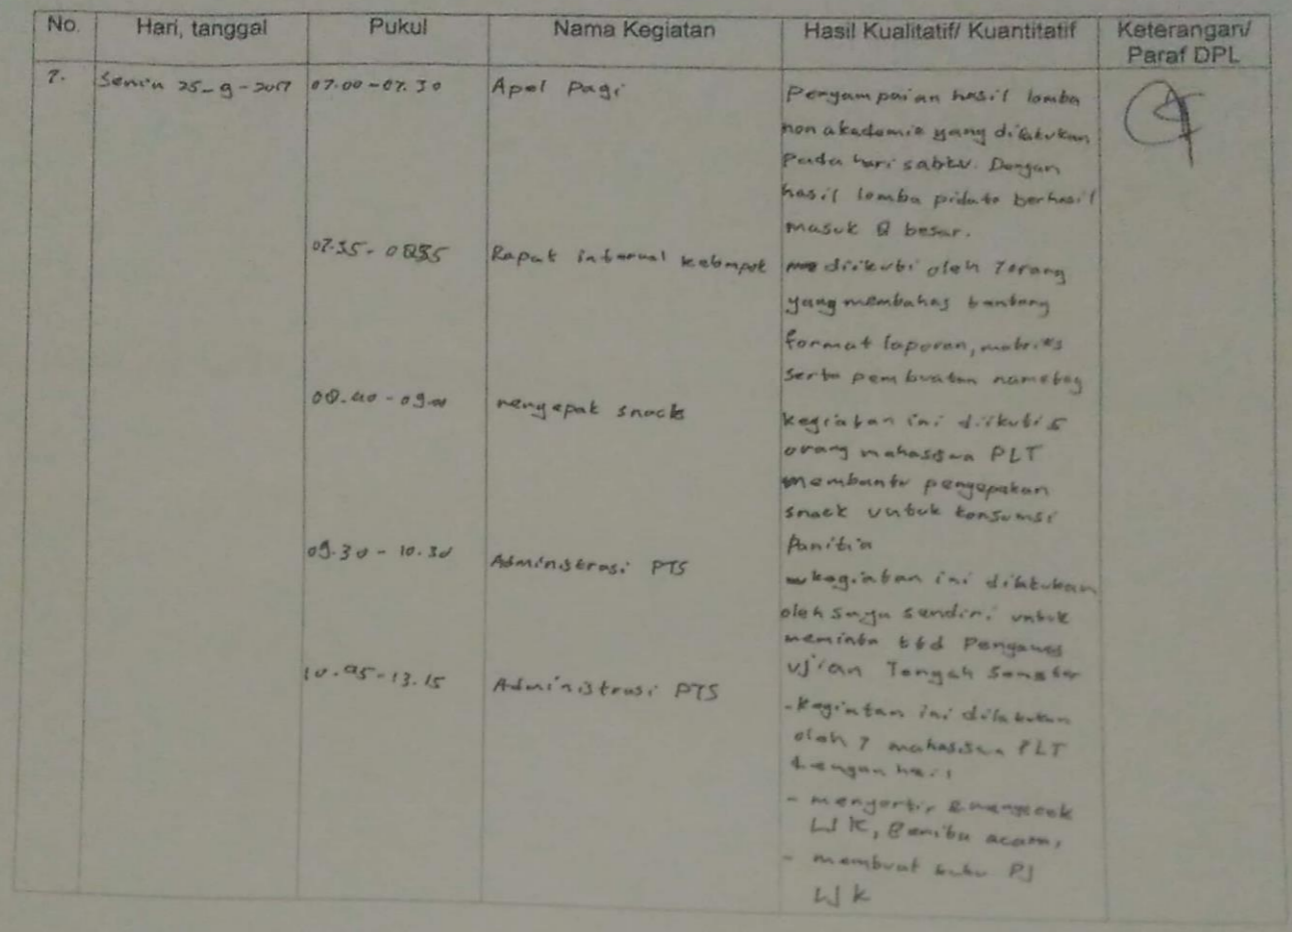 No. Hari, tanggal Pukul Nama Kegiatan Hasil Kualitatif/ Kuantitatif Keterangan/
Paraf DPL
7. Senin 25-9-2017 07.00-07.30 Apel Pagi Penyampaian hasil lomba
non akademis yang dilakukan
Pada hari sabtu. Dengan
hasil lomba pidato berhasil
masuk 8 besar.
07.35- Rapat internal kelompok diikuti oleh 7 orang
yang membahas tentang
format laporan, matriks
serta pembuatan nametag
08.40-09.00 mengepak snack kegiatan ini diikuti 5
orang mahasiswa PLT
membantu pengepakan
snack untuk konsumsi
Panitia
09.30-10.30 Administrasi PTS kegiatan ini dilakukan
oleh saya sendiri untuk
meminta ttd Pengawas
Ujian Tengah Semester
10.45-13.15 Administrasi PTS - kegiatan ini dilakukan
oleh 7 mahasiswa PLT
dengan hasil
- mengortir & mengecek
LJK, Berita acara,
- membuat buku PJ
LJK